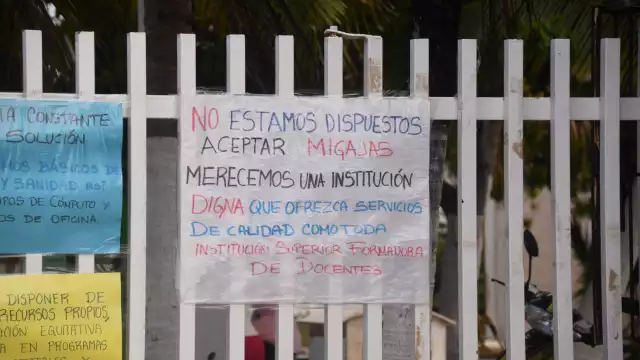 A CONSTANTE
SOLUCIÓN
MOS BÁSICOS DE
Y SANIDAD ASÍ
POS DE CÓMPUTO Y
OS DE OFICINA.
NO ESTAMOS DISPUESTOS
ACEPTAR MIGAJAS
MERECEMOS UNA INSTITUCIÓN
DIGNA QUE OFREZCA SERVICIOS
DE CALIDAD COMO TODA
INSTITUCIÓN SUPERIOR FORMADORA
DE DOCENTES
DISPONER DE
RECURSOS PROPIOS,
CIÓN EQUITATIVA
A EN PROGRAMAS
Y